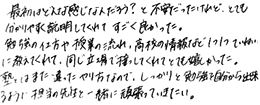 最初はどんな感じなんだろう？と不安だったけれど、とても
分かりやすく説明してくれてすごく良かった。
勉強の仕方や授業の流れ、高校の情報などについてていねい
に教えてくれて、同じ立場で接してくれてとても嬉しかった。
塾とはまた違ったやり方なので、しっかりと勉強を自分から出来る
ように担当の先生と一緒に頑張っていきたい。